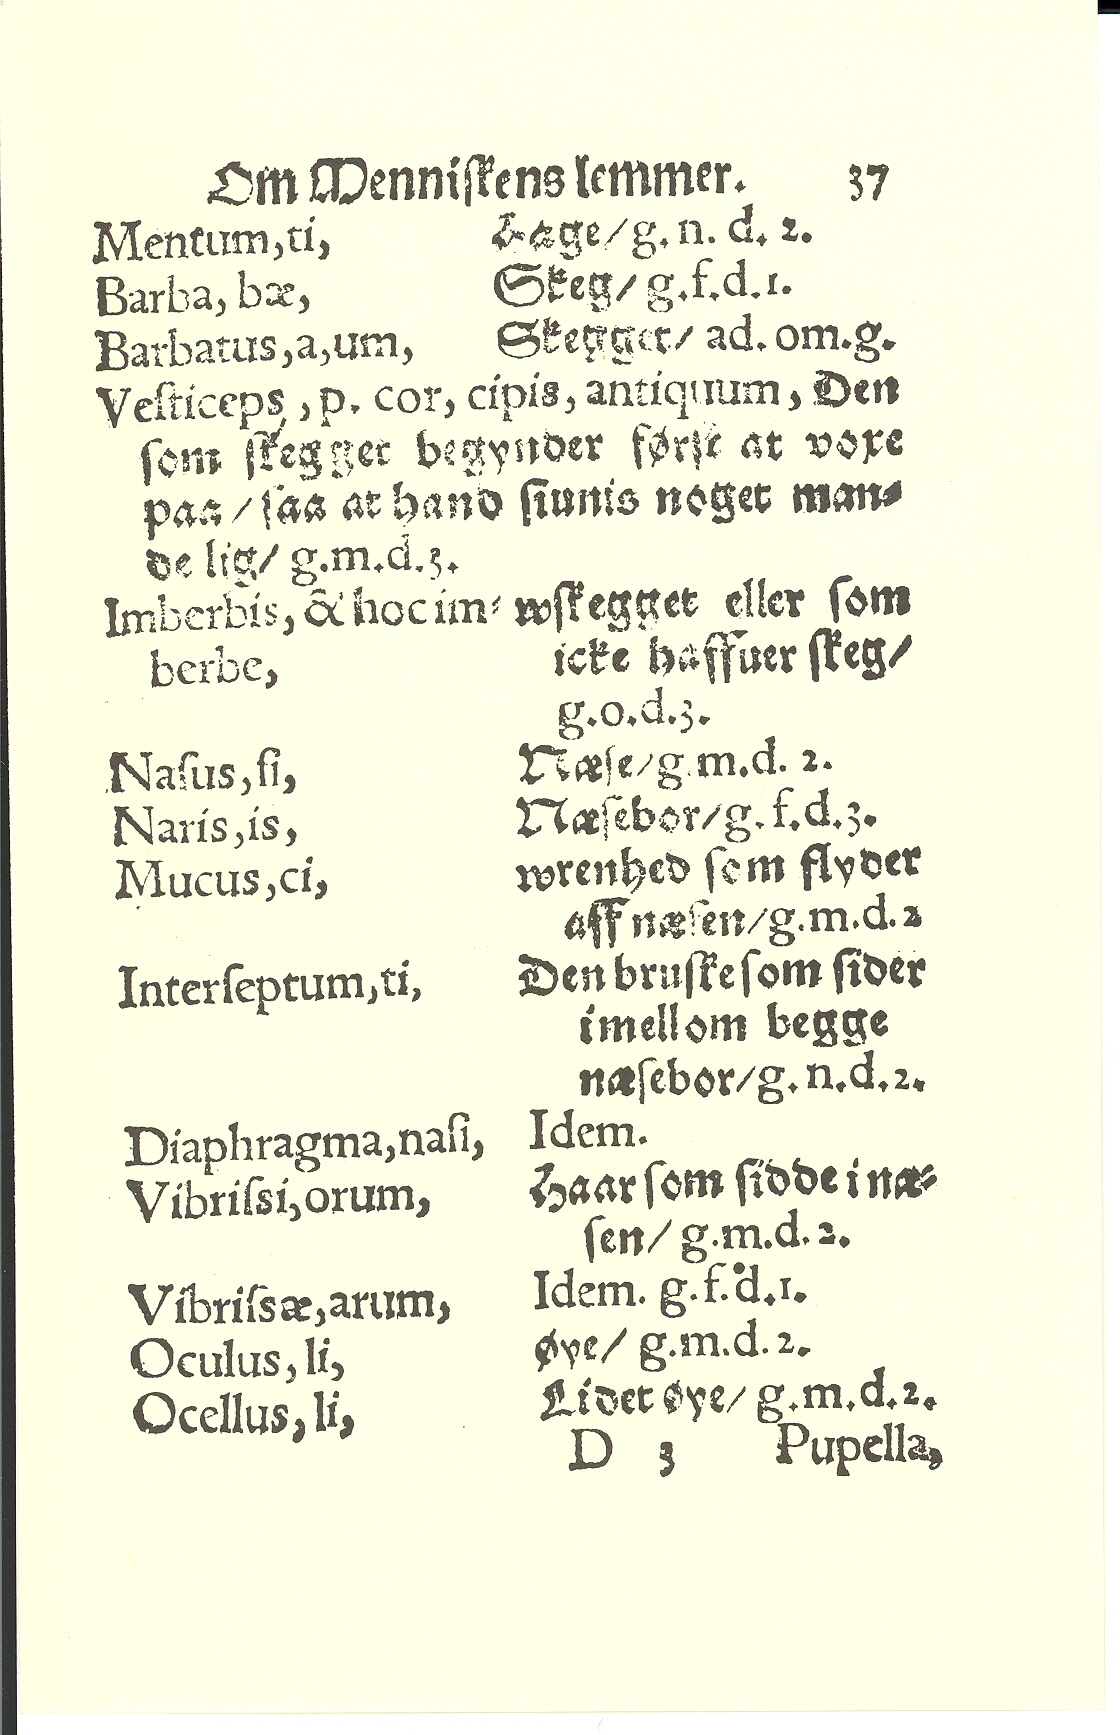 Om Menniſkens lemmer. 37
Mentum,ti, Hage/ g. n. d. 2.
Barba, bæ, Skeg/ g.f.d.1.
Barbatus,a,um, Skegget/ ad. om.g.
Veſticeps, p. cor, cipis, antiquum, Den
ſom ſkegget begynder førſt at voxe
paa / ſaa at hand ſiunis noget man⸗
de lig/ g.m.d.3.
Imberbis, & hoc im⸗ wſkegget eller ſom
berbe, icke haffuer ſkeg/
g.o.d.3.
Naſus,ſi, Næſe/g.m.d. 2.
Naris,is, Næſebor/g.f.d.3.
Mucus,ci, wrenhed ſom flyder
aff næſen/g.m.d.2
Interſeptum,ti, Den bruſke ſom ſider
imellom begge
næſebor/g. n.d.2.
Diaphragma,naſi, Idem.
Vibriſsi,orum, Haar ſom ſidde i næ⸗
ſen/ g.m.d.2.
Vibriſsæ,arum, Idem. g.f.d.1.
Oculus, li, Øye/ g.m.d.2.
Ocellus, li, Lidet øye/ g.m.d.2.
D 3 Pupella,